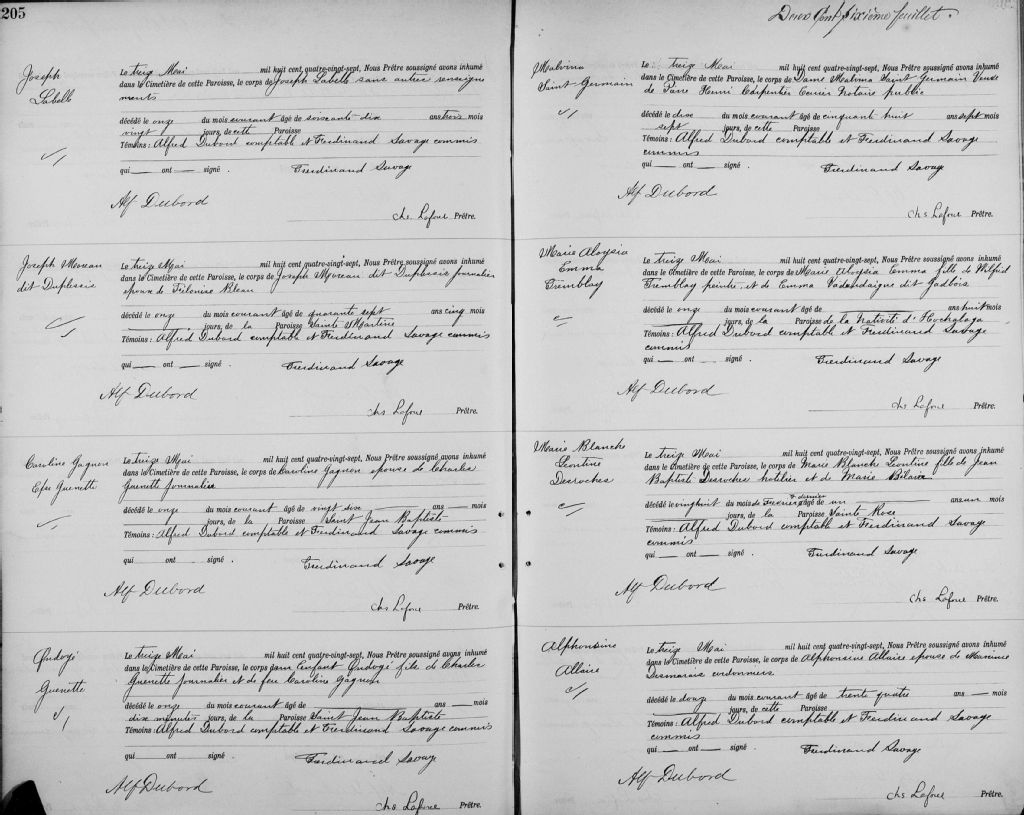 205
Joseph
Labelle
Le treize Mai mil huit cent quatre-vingt-sept, Nous Prêtre soussigné avons inhumé
dans le Cimetière de cette Paroisse, le corps de Joseph Labelle sans autres renseigne
ments
décédé le onze du mois courant âgé de soixante dix ans trois mois
vingt jours, de cette Paroisse
Témoins : Alfred Dubord comptable et Ferdinand Savage commis
qui ont signé . Ferdinand Savage
Alf Dubord
Chs Lafour Prêtre.
Joseph Moreau
dit Duplessis
Le treize Mai mil huit cent quatre-vingt-sept, Nous Prêtre soussigné avons inhumé
dans le Cimetière de cette Paroisse, le corps de Joseph Moreau dit Duplessis journalier
époux de Bleau
décédé le onze du mois courant âgé de quarante sept ans cinq mois
jours, de la Paroisse Sainte Martine
Témoins : Alfred Dubord comptable et Ferdinand Savage commis
qui ont signé . Ferdinand Savage
Alf Dubord
Chs Lafour Prêtre.
Caroline Gagnon
Epse Guenette
Le treize Mai mil huit cent quatre-vingt-sept, Nous Prêtre soussigné avons inhumé
dans le Cimetière de cette Paroisse, le corps de Caroline Gagnon épouse de Charles
Guenette Journalier
décédé le onze du mois courant âgé de vingt deux ans mois
jours, de la Paroisse Saint Jean Baptiste
Témoins : Alfred Dubord comptable et Ferdinand Savage commis
qui ont signé . Ferdinand Savage
Alf Dubord
Chs Lafour Prêtre.
Ondoyé
Guenette
Le treize Mai mil huit cent quatre-vingt-sept, Nous Prêtre soussigné avons inhumé
dans le Cimetière de cette Paroisse, le corps d'un Enfant Ondoyé fils de Charles
Guenette Journalier et de feu Caroline Gagnon
décédé le onze du mois courant âgé de ans mois
dix minutes jours, de la Paroisse Saint Jean Baptiste
Témoins : Alfred Dubord comptable et Ferdinand Savage commis
qui ont signé . Ferdinand Savage
Alf Dubord
Chs Lafour Prêtre.
Deux Cent sixième feuillet.
Malvina
Saint Germain
Le treize Mai mil huit cent quatre-vingt-sept, Nous Prêtre soussigné avons inhumé
dans le Cimetière de cette Paroisse, le corps de Dame Malvina Saint Germain Veuve
de Henri Carpentier Notaire public
décédé le dix du mois courant âgé de cinquante huit ans sept mois
sept jours, de cette Paroisse
Témoins : Alfred Dubord comptable et Ferdinand Savage
commis
qui ont signé . Ferdinand Savage
Alf Dubord
Chs Lafour Prêtre.
Marie Aloysia
Emma
Tremblay
Le treize Mai mil huit cent quatre-vingt-sept, Nous Prêtre soussigné avons inhumé
dans le Cimetière de cette Paroisse, le corps de Marie Aloysia Emma fille de Wilfrid
Tremblay peintre et de Emma Vadandaigue dit Gadbois
décédé le onze du mois courant âgé de ans huit mois
jours, de la Paroisse de la Nativité d'Hochelaga
Témoins : Alfred Dubord comptable et Ferdinand Savage
commis
qui ont signé . Ferdinand Savage
Alf Dubord
Chs Lafour Prêtre.
Marie Blanche
Leontine
Desroches
Le treize Mai mil huit cent quatre-vingt-sept, Nous Prêtre soussigné avons inhumé
dans le Cimetière de cette Paroisse, le corps de Marie Blanche Leontine fille de Jean
Baptiste Desroches hotelier et de Marie Bélair
décédé le vingt huit du mois de Fevrier dernier âgé de un ans un mois
jours, de la Paroisse Sainte Rose
Témoins : Alfred Dubord comptable et Ferdinand Savage
commis
qui ont signé . Ferdinand Savage
Alf Dubord
Chs Lafour Prêtre.
Alphonsine
Allaire
Le treize Mai mil huit cent quatre-vingt-sept, Nous Prêtre soussigné avons inhumé
dans le Cimetière de cette Paroisse, le corps de Alphonsine Allaire épouse de Maxime
Desmarais cordonnier
décédé le douze du mois courant âgé de trente quatre ans mois
jours, de cette Paroisse
Témoins : Alfred Dubord comptable et Ferdinand Savage
commis
qui ont signé . Ferdinand Savage
Alf Dubord
Chs Lafour Prêtre.